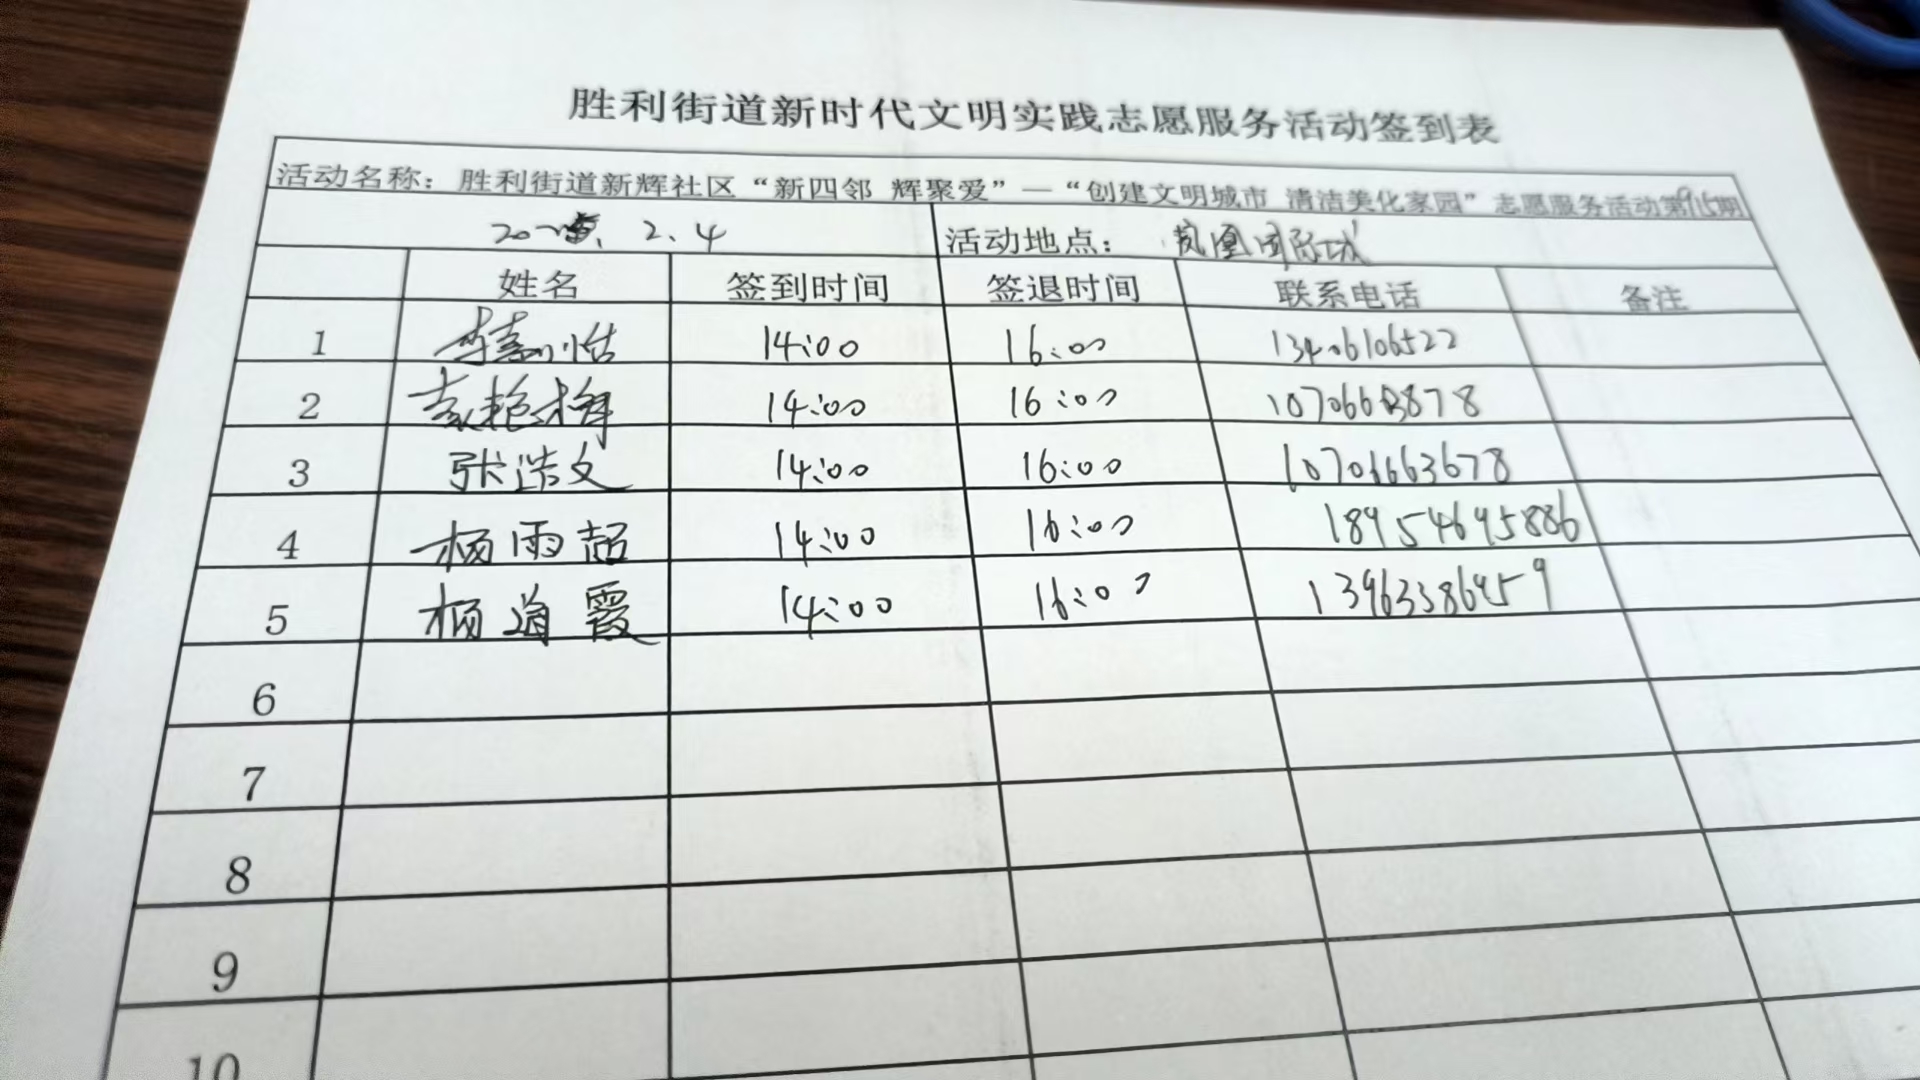 胜利街道新时代文明实践志愿服务活动签到表
活动名称：胜利街道新辉社区“新四邻 辉聚爱”—“创建文明城市 清洁美化家园”志愿服务活动第 期
2.4 活动地点：凤凰国际城
姓名 签到时间 签退时间 联系电话 备注
1 14:00 16:00 13406106522
2 袁艳梅 14:00 16:00
3 张浩文 14:00 16:00 10701663678
4 杨雨超 14:00 16:00 18954695886
5 杨道霞 14:00 16:00 13963386959
6
7
8
9
10